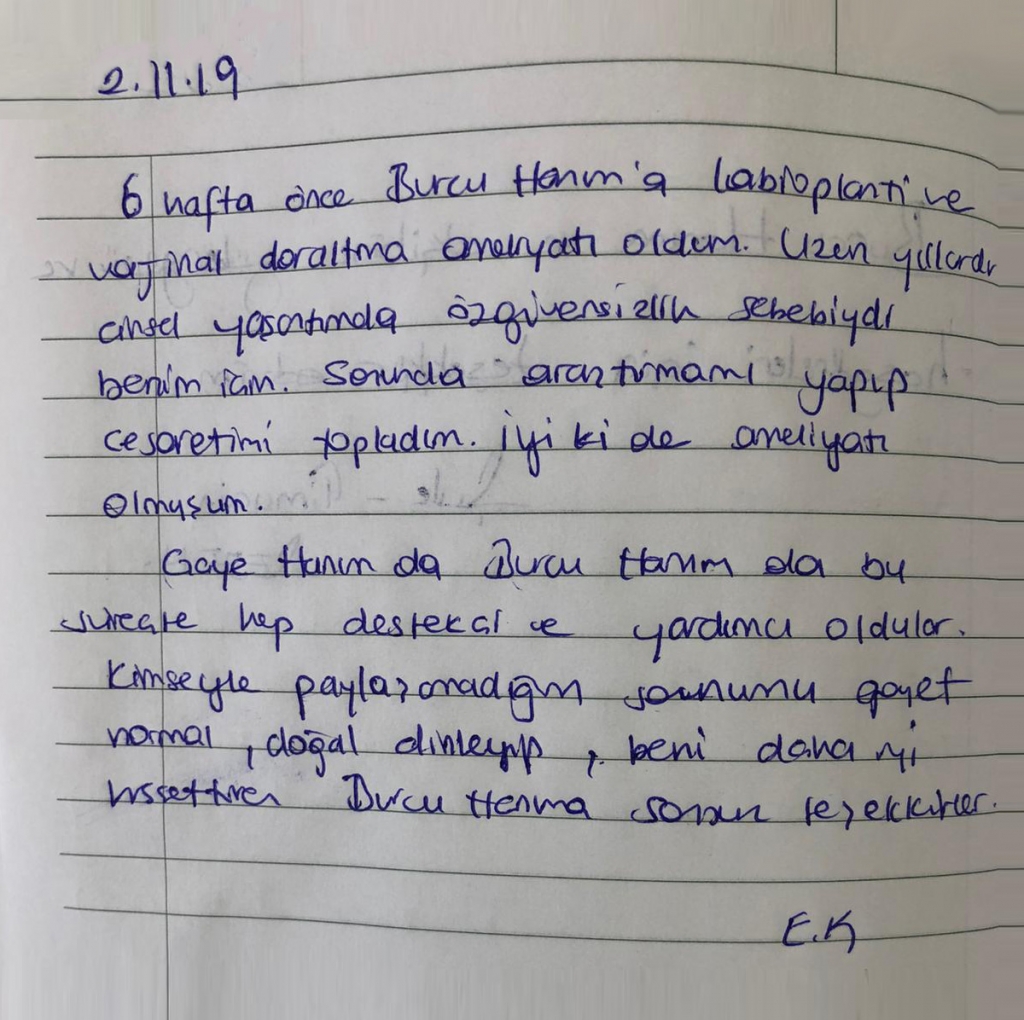 2.11.19
6 hafta önce Burcu Hanım'a labioplasti ve
vajinal daraltma ameliyatı oldum. Uzun yıllardı
cinsel yaşantımda özgüvensizlik sebebiydi
benim için. Sonunda araştırmamı yapıp
cesaretimi topladım. İyi ki de ameliyatı
olmuşum.
Gaye Hanım da Burcu Hanım da bu
süreçte hep destekçi ve yardımcı oldular.
Kimseyle paylaşamadığım sorunumu gayet
normal, doğal dinleyip, beni daha iyi
hissettiren Burcu Hanıma sonsuz teşekkürler.
E.K